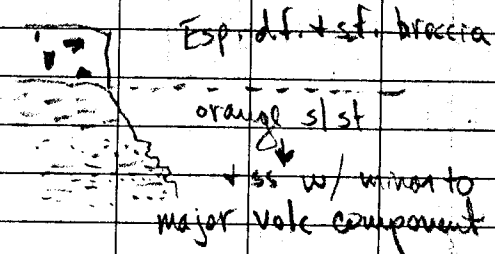 Esp. d.f. + s.f. breccia
orange slst
+ ss w/ minor to
major volc component